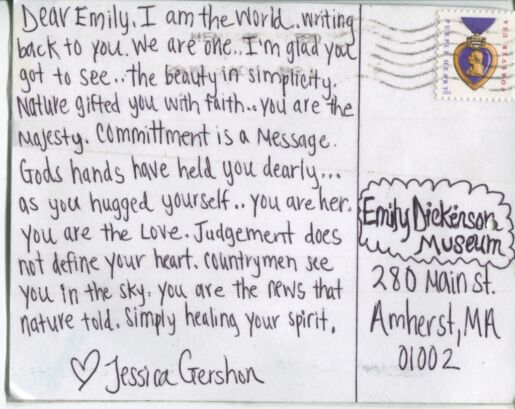 Dear Emily, I am the World.. writing
back to you. We are one.. I'm glad you
got to see.. the beauty in simplicity.
Nature gifted you with faith.. you are the
Majesty. Committment is a Message.
Gods hands have held you dearly...
as you hugged yourself.. you are her.
You are the Love. Judgement does
not define your heart. Countrymen see
you in the sky. you are the news that
nature told. Simply healing your spirit.
♡ Jessica Gershon
PURPLE HEART
FOREVER USA
Emily Dickenson
Museum
280 Main St.
Amherst, MA
01002